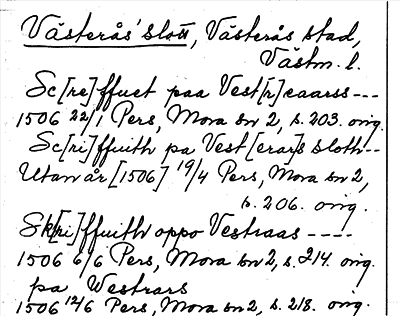 Västerås' slott, Västerås stad,
Västm. l.
Sc[re]ffuet paa Vest[r]eaarss ---
1506 22/1 Pers, Mora sn 2, s. 203. orig.
Sc[ri]ffuith pa Vest[erar]s sloth--
Utan år [1506] 19/4 Pers, Mora sn 2,
s. 206. orig.
Sk[ri]ffuith oppo Vestraas ----
1506 6/6 Pers, Mora sn 2, s. 214. orig.
pa Westrars
1506 12/6 Pers, Mora sn 2, s. 218. orig.